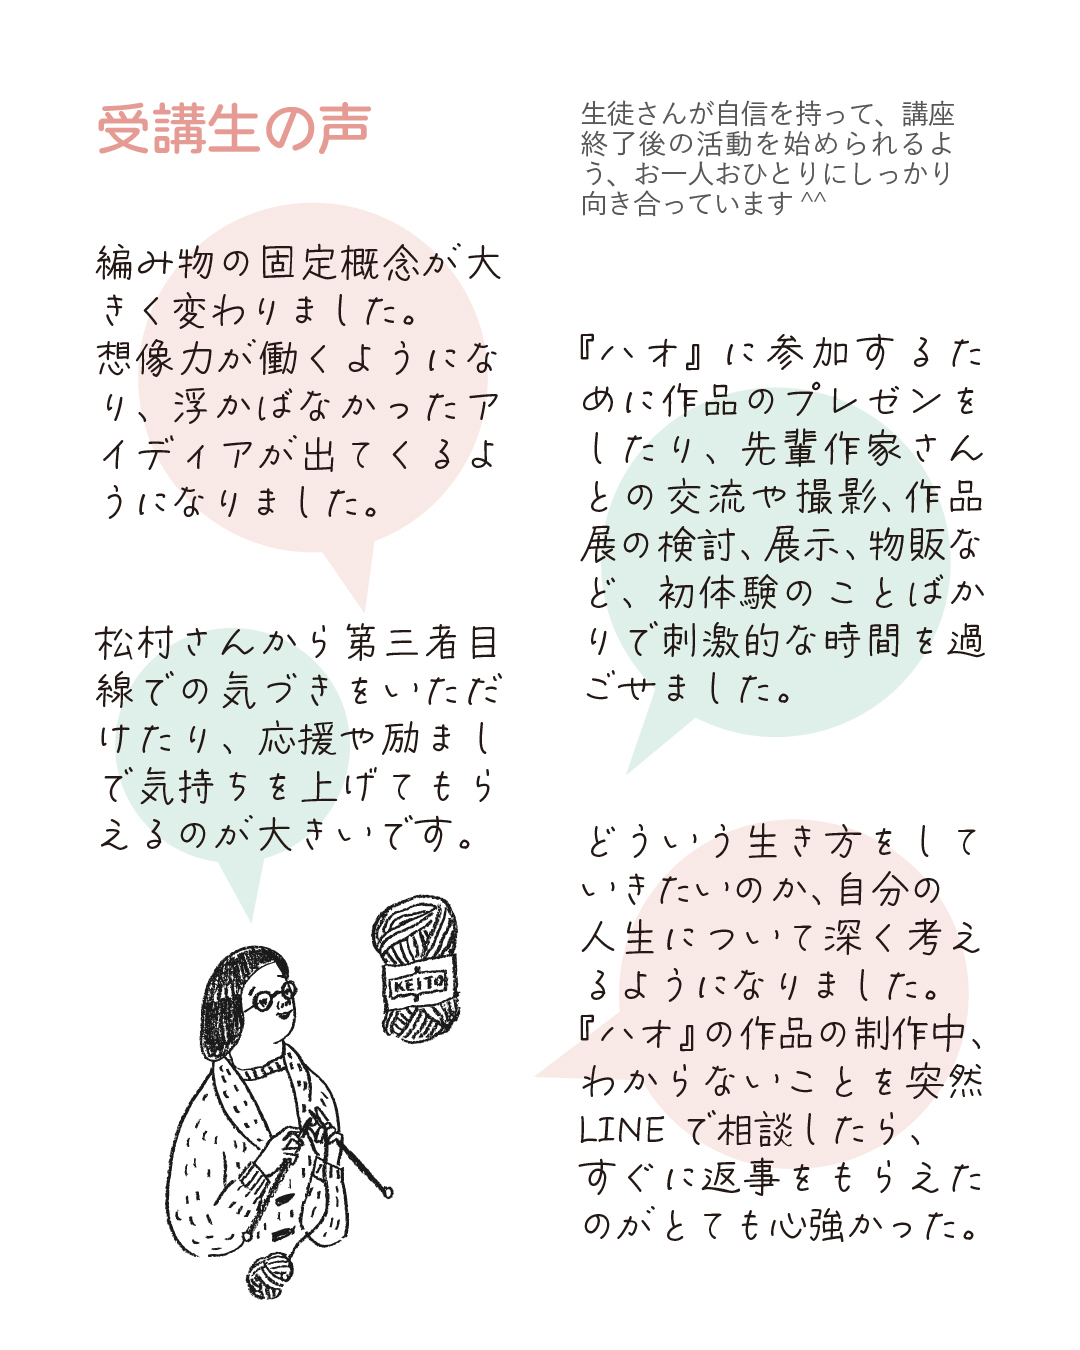 受講生の声
生徒さんが自信を持って、講座
終了後の活動を始められるよ
う、お一人おひとりにしっかり
向き合っています^^
編み物の固定概念が大
きく変わりました。
想像力が働くようにな
り、浮かばなかったア
イディアが出てくるよ
うになりました。
松村さんから第三者目
線での気づきをいただ
けたり、応援や励まし
で気持ちを上げてもら
えるのが大きいです。
KEITO
『ハオ』に参加するた
めに作品のプレゼンを
したり、先輩作家さん
との交流や撮影、作品
展の検討、展示、物販な
ど、初体験のことばか
りで刺激的な時間を過
ごせました。
どういう生き方をして
いきたいのか、自分の
人生について深く考え
るようになりました。
『ハオ』の作品の制作中、
わからないことを突然
LINEで相談したら、
すぐに返事をもらえた
のがとても心強かった。